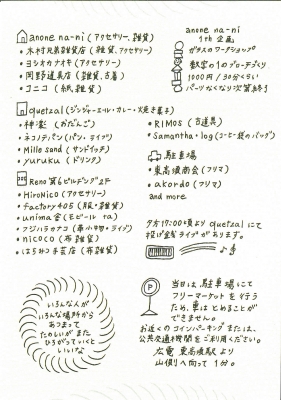 anone na-ni (アクセサリー、雑貨)
・木村兄弟雑貨店 (雑貨、アクセサリー)
・ヨシオカナオキ (アクセサリー)
・岡野道具店 (雑貨、古着)
・コニコ (紙、雑貨)
quetzal (ジンジャーエール・カレー・焼き菓子)
・神楽 (おだんご)
・ネコノテパン (パン・ライブ)
・Mille sand (サンドイッチ)
・yuruku (ドリンク)
Reno 第6ビルディング 2F
・HiroNico (アクセサリー)
・factory405 (服・雑貨)
・unima舎 (モビール ra)
・フジハラカナコ (革小物・ライブ)
・nicoco (布雑貨)
・はらみつ手芸店 (布雑貨)
anone na-ni
1th 企画
ガラスのワークショップ
教室の1のブローチづくり
1000円 / 30分くらい
パーツなくなり次第終了
・RIMOS (古道具)
・Samantha+log (コーヒー袋のバッグ)
駐車場
・東高須商会 (フリマ)
・akordo (フリマ)
and more
夕方17:00頃より quetzal にて
投げ銭ライブがあります。
いろんな人が
いろんな場所から
あつまって
たのしいが また
ひろがっていくと
いいな
P
当日は、駐車場にて
フリーマーケットを行う
ため、車はとめることが
できません。
お近くのコインパーキングまたは、
公共交通機関をご利用ください。
広電 東高須駅より
山側へ向って1分。